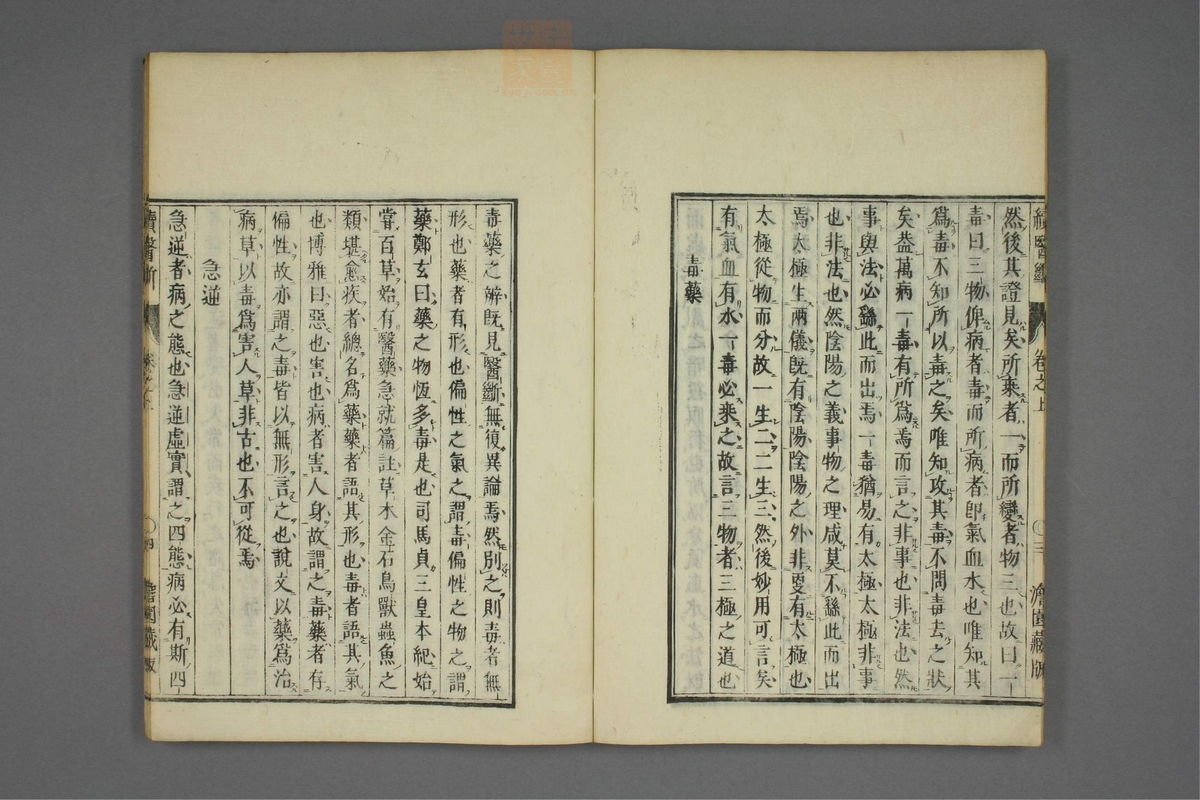 續醫斷 卷之上 ○三 澹園藏版
然後其證見矣所乘者一而所變者物三也故曰一
毒曰三物俾病者毒而所病者卽氣血水也唯知其
爲毒不知所以毒之矣唯知攻其毒不問毒去之狀
矣蓋萬病一毒有所爲焉而言之非事也非法也然
事與法必繇此而出焉一毒猶易有太極太極非事
也非法也然陰陽之義事物之理咸莫不繇此而出
焉太極生兩儀旣有陰陽陰陽之外非更有太極也
太極從物而分故一生二二生三然後妙用可言矣
有氣血有水一毒必乘之故言三物者三極之道也
毒藥
毒藥之辨旣見醫斷無復異論焉然別之則毒者無
形也藥者有形也偏性之氣之謂毒偏性之物之謂
藥鄭玄曰藥之物恆多毒是也司馬貞三皇本紀始
嘗百草始有醫藥急就篇註草木金石鳥獸蟲魚之
類堪愈疾者總名爲藥藥者語其形也毒者語其氣
也博雅曰惡也害也病者害人身故謂之毒藥者有
偏性故亦謂之毒皆以無形言之也說文以藥爲治
病草以毒爲害人草非古也不可從焉
急逆
急逆者病之態也急逆虛實謂之四態病必有斯四
續醫斷 卷之上 ○四 澹園藏版